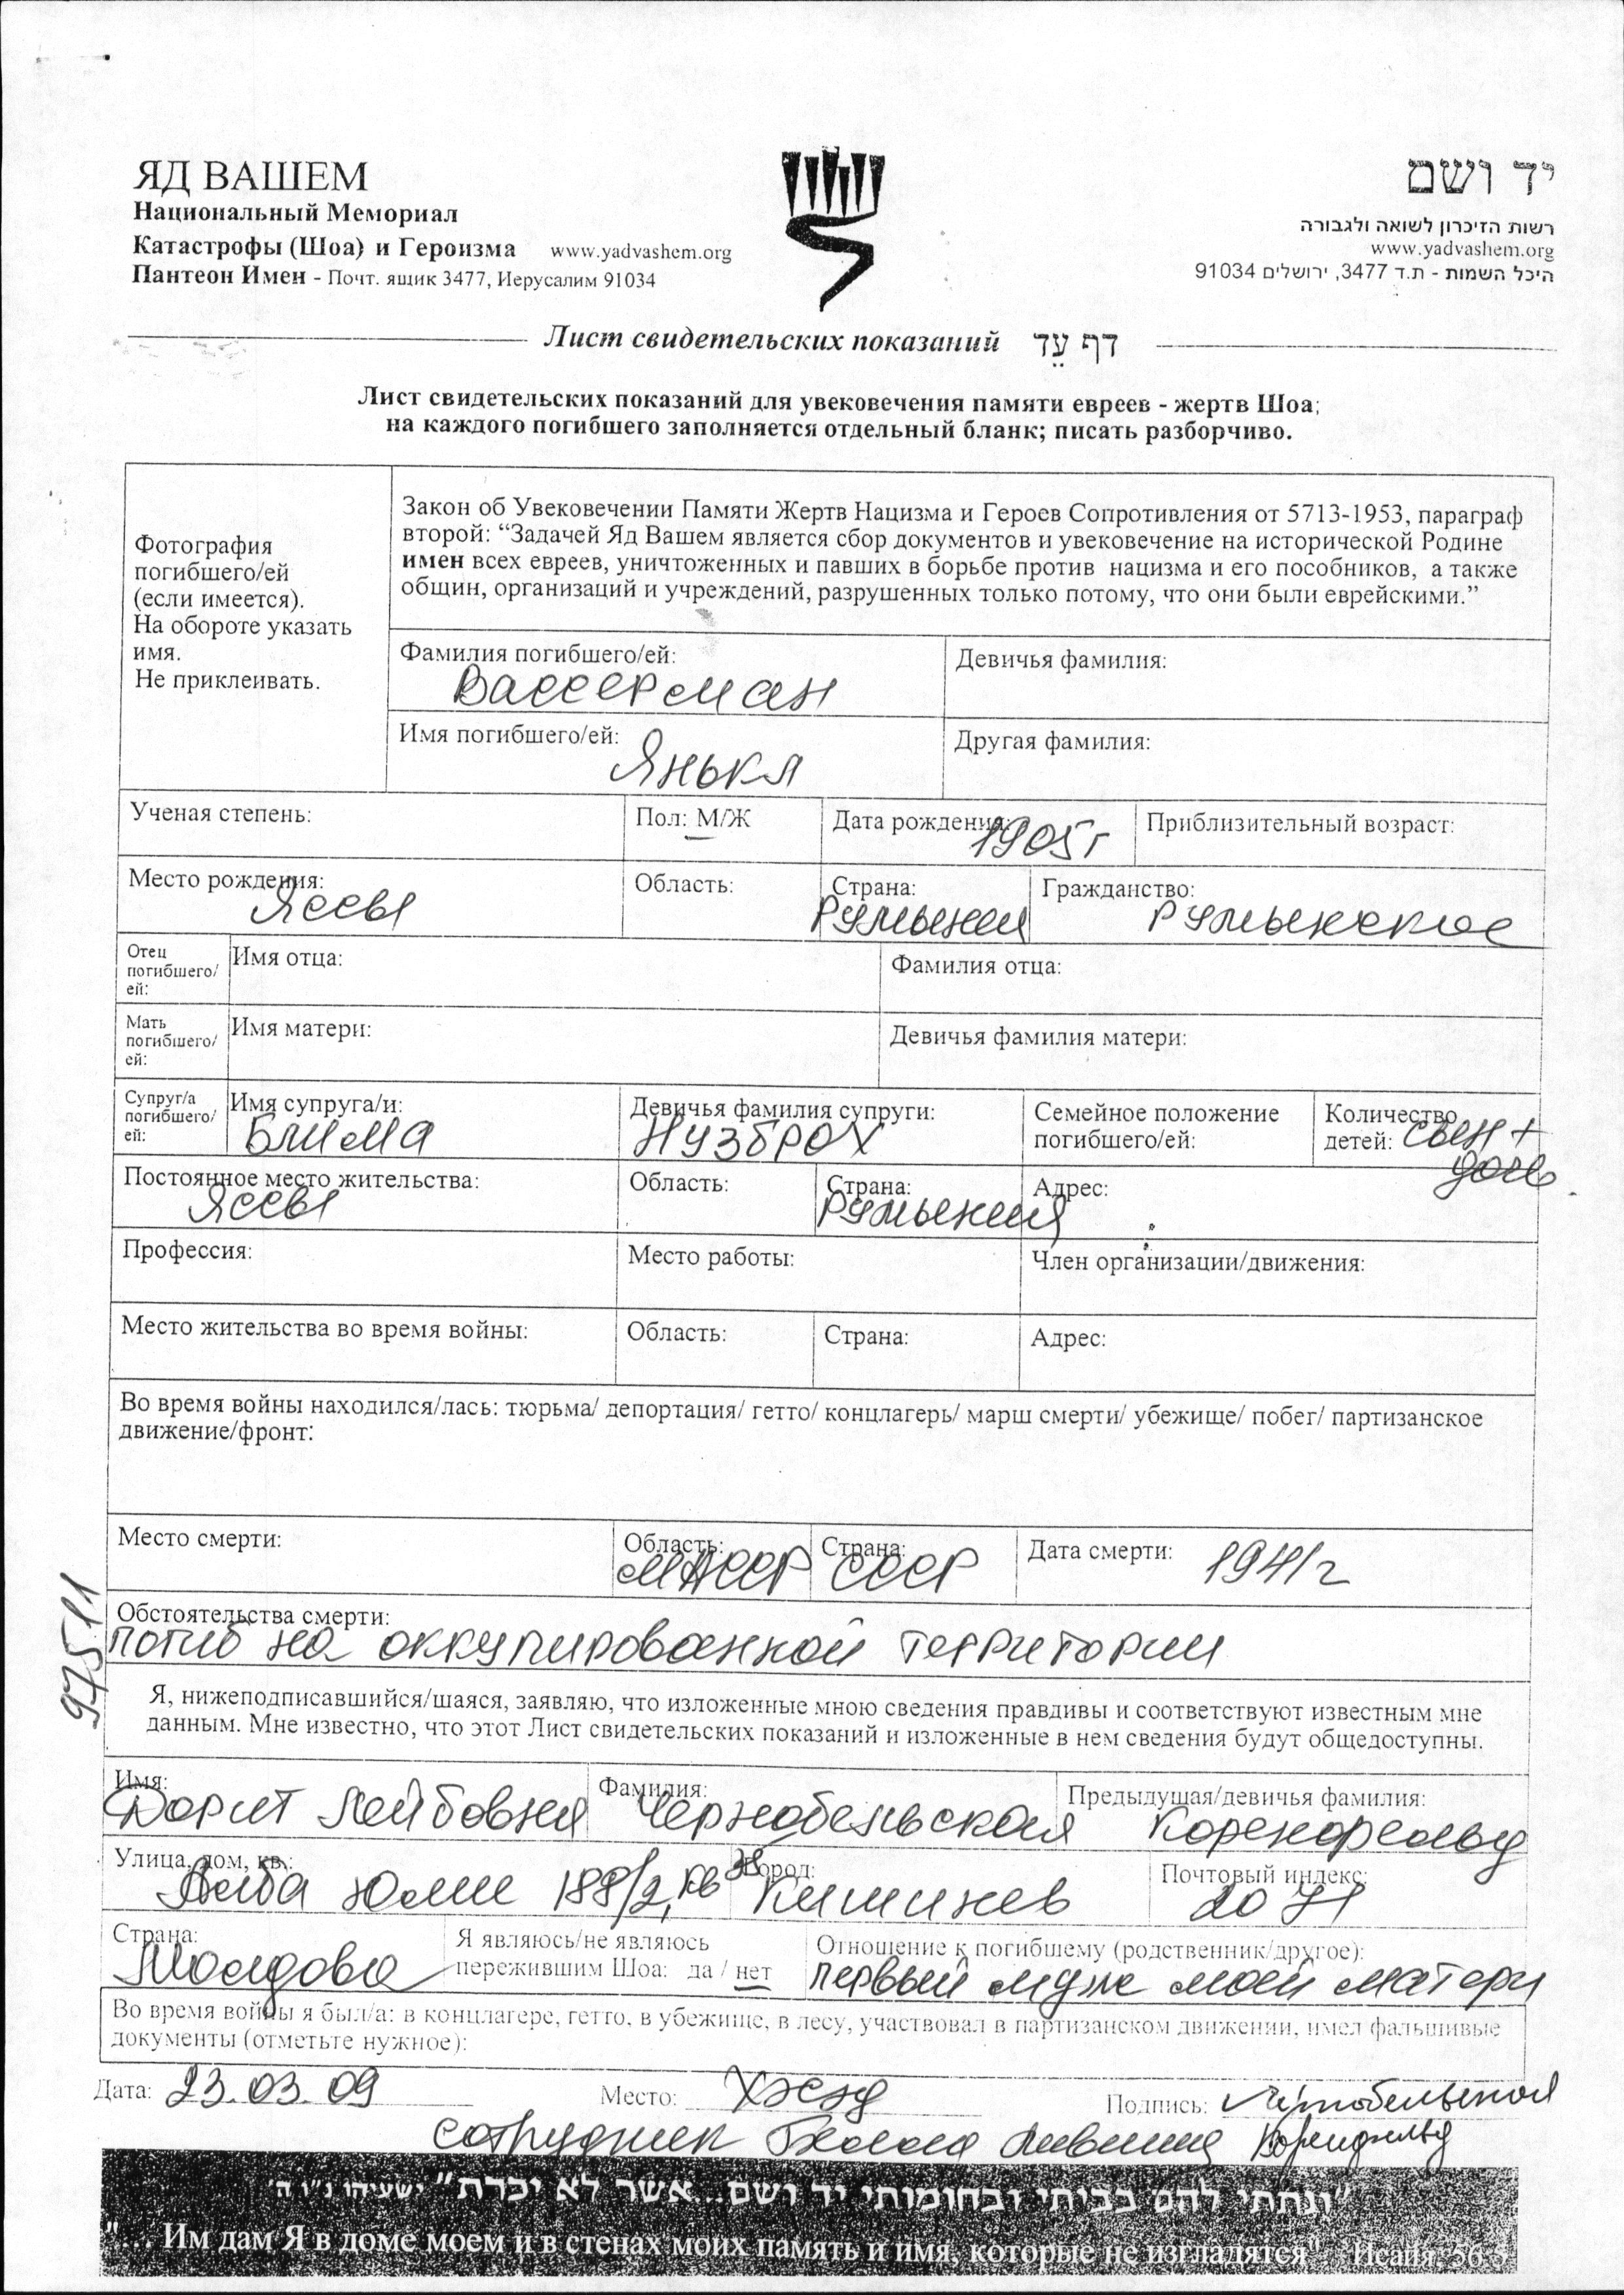 ЯД ВАШЕМ
Национальный Мемориал
Катастрофы (Шоа) и Героизма www.yadvashem.org
Пантеон Имен - Почт. ящик 3477, Иерусалим 91034
יד ושם
רשות הזיכרון לשואה ולגבורה
www.yadvashem.org
היכל השמות - ת.ד 3477, ירושלים 91034
Лист свидетельских показаний דף עֵד
Лист свидетельских показаний для увековечения памяти евреев - жертв Шоа;
на каждого погибшего заполняется отдельный бланк; писать разборчиво.
Фотография
погибшего/ей
(если имеется).
На обороте указать
имя.
Не приклеивать.
Закон об Увековечении Памяти Жертв Нацизма и Героев Сопротивления от 5713-1953, параграф
второй: “Задачей Яд Вашем является сбор документов и увековечение на исторической Родине
имен всех евреев, уничтоженных и павших в борьбе против нацизма и его пособников, а также
общин, организаций и учреждений, разрушенных только потому, что они были еврейскими.”
Фамилия погибшего/ей: Девичья фамилия:
Вассерман
Имя погибшего/ей: Другая фамилия:
Янькл
Ученая степень: Пол: М/Ж Дата рождения: 1905г Приблизительный возраст:
Место рождения: Область: Страна: Гражданство:
Яссы Румыния Румынское
Отец
погибшего/
ей:
Имя отца: Фамилия отца:
Мать
погибшего/
ей:
Имя матери: Девичья фамилия матери:
Супруг/а
погибшего/
ей:
Имя супруга/и: Девичья фамилия супруги: Семейное положение
погибшего/ей: Количество
детей: сын +
дочь
Блима Нузброх
Постоянное место жительства: Область: Страна: Адрес:
Яссы Румыния
Профессия: Место работы: Член организации/движения:
Место жительства во время войны: Область: Страна: Адрес:
Во время войны находился/лась: тюрьма/ депортация/ гетто/ концлагерь/ марш смерти/ убежище/ побег/ партизанское
движение/фронт:
Место смерти: Область: Страна: Дата смерти: 1941г
МАССР СССР
Обстоятельства смерти:
погиб на оккупированной территории
97511
Я, нижеподписавшийся/шаяся, заявляю, что изложенные мною сведения правдивы и соответствуют известным мне
данным. Мне известно, что этот Лист свидетельских показаний и изложенные в нем сведения будут общедоступны.
Имя: Фамилия: Предыдущая/девичья фамилия:
Дорит Лейбовна Чернобельская Коренфельд
Улица, дом, кв.: Город: Почтовый индекс:
Алба Юлии 188/2, кв 38 Кишинев 2071
Страна: Я являюсь/не являюсь
пережившим Шоа: да / нет Отношение к погибшему (родственник/другое):
Молдова первый муж моей матери
Во время войны я был/а: в концлагере, гетто, в убежище, в лесу, участвовал в партизанском движении, имел фальшивые
документы (отметьте нужное):
Дата: 23.03.09 Место: Хэсэд Подпись: Чернобельская
сотрудник Лившиц Коренфельд
"ונתתי להם בביתי ובחומותי יד ושם...אשר לא יכרת" ישעיהו נ"ו ה'
"... Им дам Я в доме моем и в стенах моих память и имя, которые не изгладятся" Исайя, 56:5